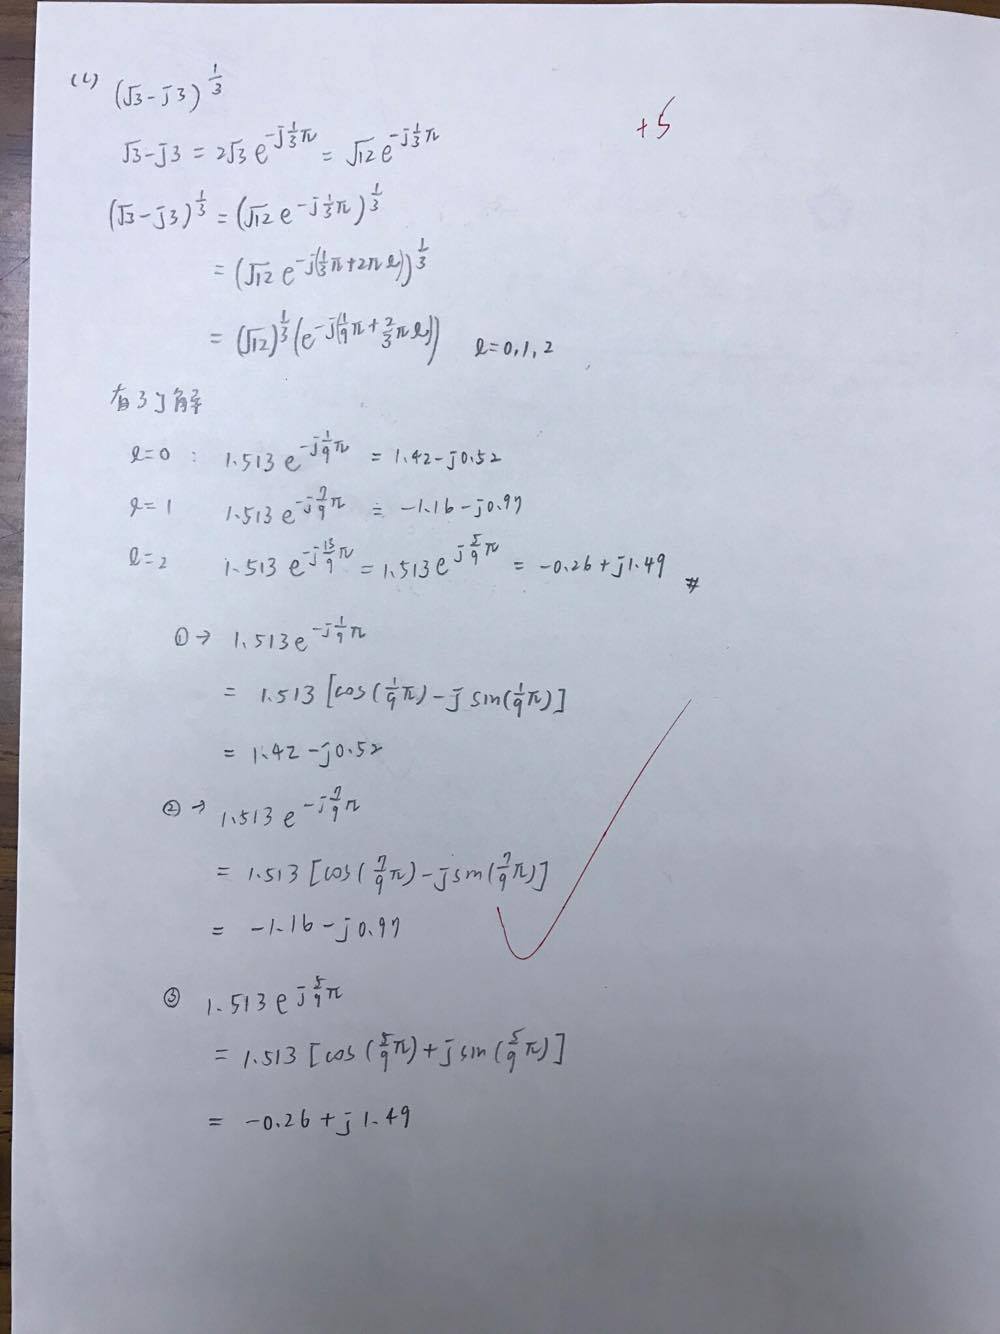 (c) (√3-j3)^(1/3)
+5
√3-j3 = 2√3 e^(-j(1/3)π) = √12 e^(-j(1/3)π)
(√3-j3)^(1/3) = (√12 e^(-j(1/3)π))^(1/3)
= (√12 e^(-j(1/3π+2πℓ)))^(1/3)
= (√12)^(1/3) (e^(-j(1/9π+2/3πℓ))) ℓ=0,1,2
有3個解
ℓ=0 : 1.513 e^(-j(1/9)π) = 1.42-j0.52
ℓ=1 1.513 e^(-j(7/9)π) = -1.16-j0.97
ℓ=2 1.513 e^(-j(13/9)π) = 1.513 e^(j(5/9)π) = -0.26+j1.49 #
①→ 1.513 e^(-j(1/9)π)
= 1.513 [cos(1/9π)-j sin(1/9π)]
= 1.42-j0.52
②→ 1.513 e^(-j(7/9)π)
= 1.513 [cos(7/9π)-j sin(7/9π)]
= -1.16-j0.97
③ 1.513 e^(j(5/9)π)
= 1.513 [cos(5/9π)+j sin(5/9π)]
= -0.26+j1.49